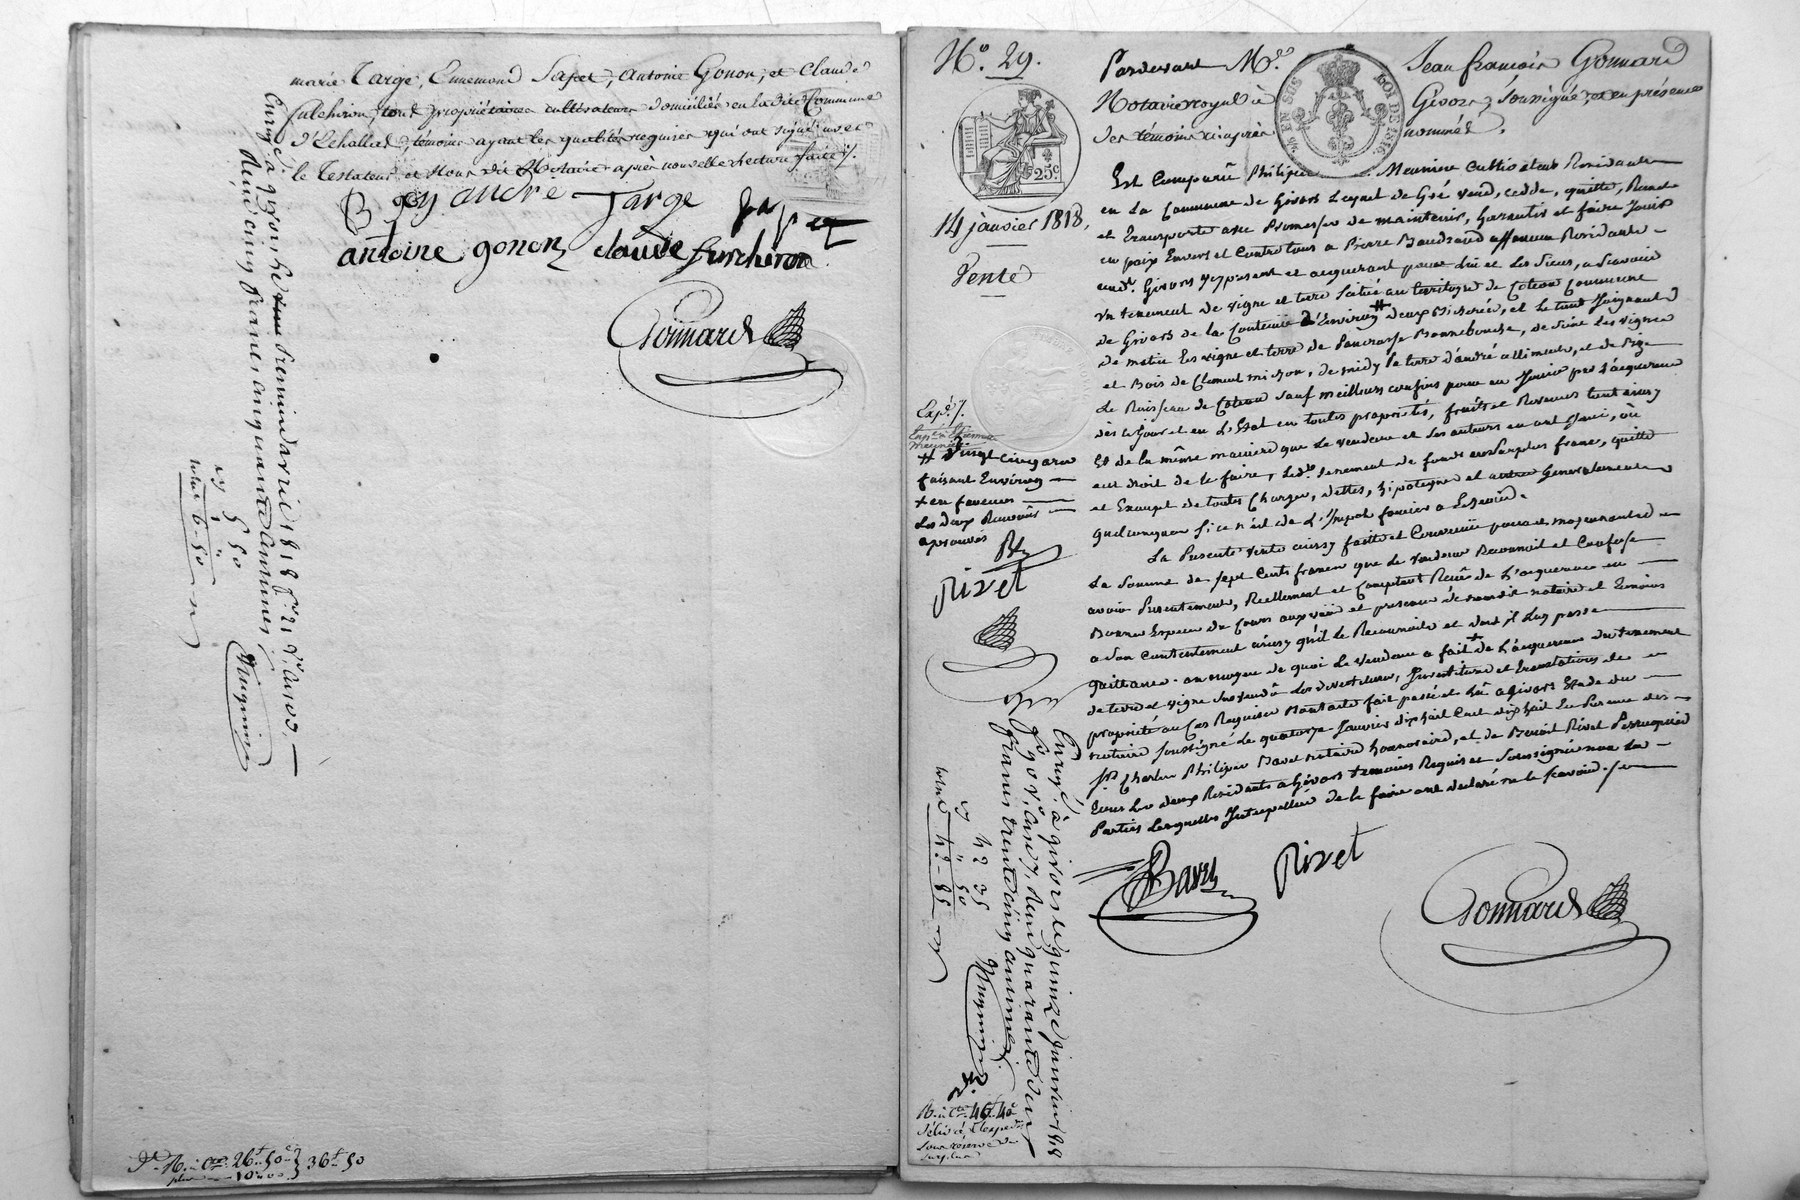 marie Targe, Ennemond Sapet, Antoine Gonon, et Claude
fulchiron, tous propriétaires cultivateurs domiciliés en la dite Commune
d'Echallas, témoins ayant les qualités requises qui ont signé avec
le Testateur et Nous dit Notaire après nouvelle lecture faite.
andré Targe Sapet
antoine gonon claude furcheron
Gonnard
Enregé à givors le premier avril 1818 f° 21 v° cases
Reçu cinq francs cinquante centimes
5 50
total 6-50
26 50
10 00
36 50
N° 29.
25 c
14 janvier 1818,
Vente
Expé.
# vingt cinq ares
faisant Environ
+ en faveur
Les deux Renvois
aprouvés
Rivet
Pardevant Me. Jean francois Gonnard
Notaire royal à Givors, soussigné, et en présence
des témoins ci après nommés.
EN SUS
LOI DE 1816
Est Comparû Philippe Meunier cultivateur Residant
en La Commune de Givors Lequel de Gré vend, cedde, quitte, Remet
et transporte avec Promesse de maintenir, Garantir et faire Jouir
en paix Envers et Contre tous a Pierre Baudrand Residant
aud. Givors icy present et acquerant pour Lui et Les Siens, a Scavoir
un tenement de vigne et terre Situé au territoire de Coteau Commune
de Givors de la Contenüe d'Environ # deux Bicherées, et Le tout Joignant
de matin Les vigne et terre de Pancrasse Bonnebouche, de Les vigne
et Bois de Clement michon, de midy La terre d'andré allimand, et de Bize
Le Ruisseau de Coteau Sauf meilleurs confins pour en Jouir par L'acquereur
dès ce Jour et en L'Etat en toutes proprietés, fruits et Revenus tout ainsy
Et de la même maniere que Le vendeur et Ses auteurs en ont Joui, où
eut droit de le faire, Led. tenement de fonds au Surplus franc, quitte
et Exempt de toutes Charges, dettes, hipoteques et autres Generalement
quelconques si ce n'est de L'Impot foncier a L'avenir.
La Presente vente ainsy faitte et Convenüe pour et moyennant
La Somme de sept Cents francs que Le vendeur Reconnoit et Confesse
avoir Presentement, Reellement et Comptant Reçu de L'acquereur en
Bonnes Especes du Cours aux vüe et presence de nousdit notaire et temoins
a Son Contentement ainsy qu'il Le Reconnoit et dont il Luy passe
quittance. au moyen de quoi Le vendeur a fait + de L'acquereur du tenement
de terre et vigne Les devestiture, Investiture et translations de
propriété au Cas Requises dont acte fait passé et Lû a Givors Etude du
notaire soussigné Le quatorze Janvier dix huit Cent dix huit En Presence des
Srs Charles Philippe Bavet notaire honnoraire, et de Benoit Rivet Perruquier
tous Les deux Residants a Givors temoins Requis et Soussignés non Les
Parties Lesquelles Interpellées de Le faire ont declaré ne le Scavoir.
Rivet
Gonnard
Enregé à givors le quinze janvier 1818
Reçu quarante deux
francs trente cinq centimes
42 35
50
total 42-85
délivré
sous réserve du
surplus